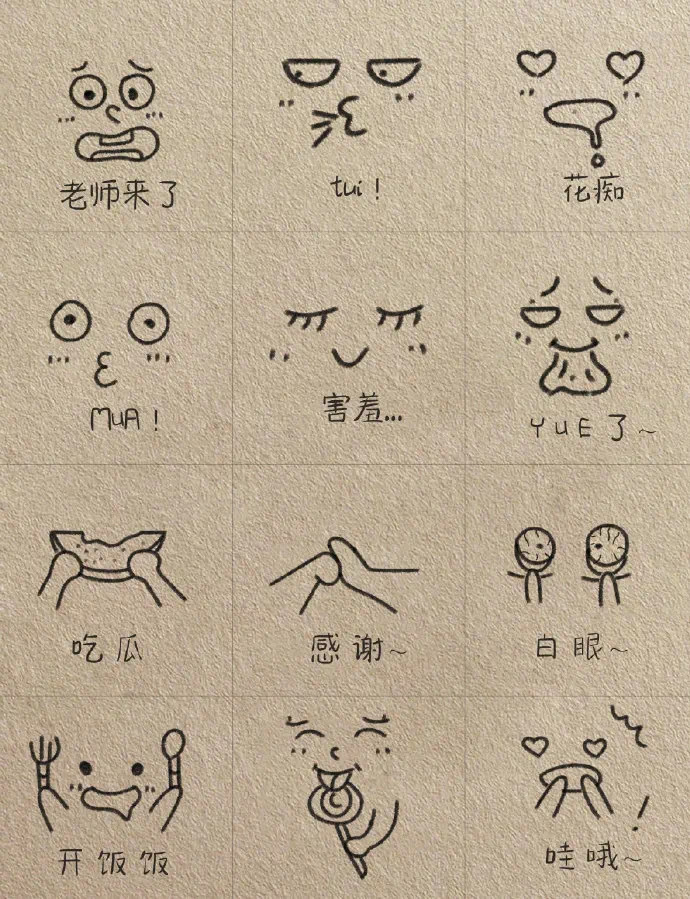 老师来了
tui！
花痴
MuA！
害羞...
YuE了~
吃瓜
感谢~
白眼~
开饭饭
哇哦~